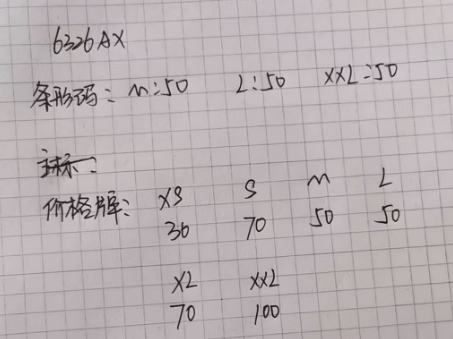 6326AX
条形码: M:50 L:50 XXL:50
主标:
价格牌: XS S M L
30 70 50 50
XL XXL
70 100